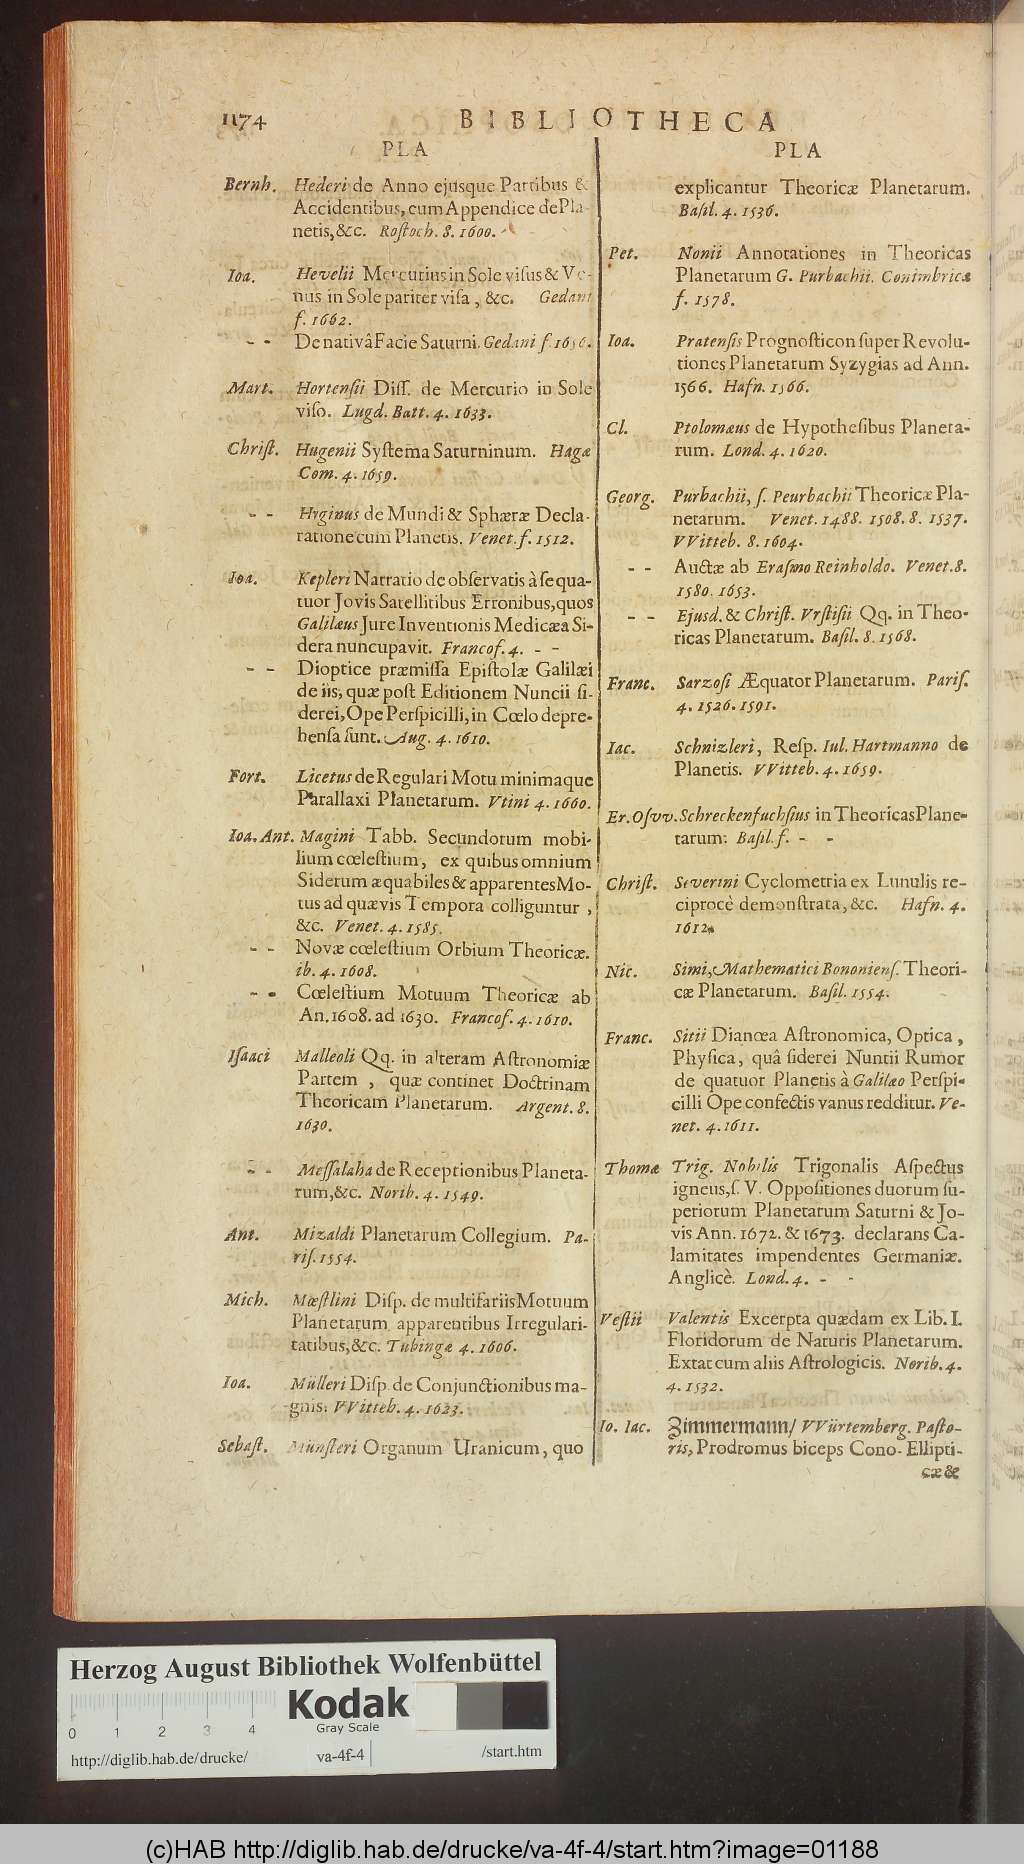 1174 BIBLIOTHECA
PLA
Bernh. Hederi de Anno ejusque Partibus &
Accidentibus, cum Appendice de Pla-
netis, &c. Rostoch. 8. 1600.
Ioa. Hevelii Mercurius in Sole visus & Ve-
nus in Sole pariter visa, &c. Gedani
f. 1662.
- - De nativâ Facie Saturni. Gedani f. 1656.
Mart. Hortensii Diss. de Mercurio in Sole
viso. Lugd. Batt. 4. 1633.
Christ. Hugenii Systema Saturninum. Hagæ
Com. 4. 1659.
- - Hyginus de Mundi & Sphæræ Decla-
ratione cum Planetis. Venet. f. 1512.
Ioa. Kepleri Narratio de observatis à se qua-
tuor Jovis Satellitibus Erronibus, quos
Galilæus Jure Inventionis Medicæa Si-
dera nuncupavit. Francof. 4. - -
- - Dioptice præmissa Epistolæ Galilæi
de iis, quæ post Editionem Nuncii si-
derei, Ope Perspicilli, in Cœlo depre-
hensa sunt. Aug. 4. 1610.
Fort. Licetus de Regulari Motu minimaque
Parallaxi Planetarum. Vtini 4. 1660.
Ioa. Ant. Magini Tabb. Secundorum mobi-
lium cœlestium, ex quibus omnium
Siderum æquabiles & apparentes Mo-
tus ad quævis Tempora colliguntur,
&c. Venet. 4. 1585.
- - Novæ cœlestium Orbium Theoricæ.
ib. 4. 1608.
- - Cœlestium Motuum Theoricæ ab
An. 1608. ad 1630. Francof. 4. 1610.
Isaaci Malleoli Qq. in alteram Astronomiæ
Partem, quæ continet Doctrinam
Theoricam Planetarum. Argent. 8.
1630.
- - Messalaha de Receptionibus Planeta-
rum, &c. Norib. 4. 1549.
Ant. Mizaldi Planetarum Collegium. Pa-
ris. 1554.
Mich. Mæstlini Disp. de multifariis Motuum
Planetarum apparentibus Irregulari-
tatibus, &c. Tubingæ 4. 1606.
Ioa. Mülleri Disp. de Conjunctionibus ma-
gnis. VVitteb. 4. 1623.
Sebast. Münsteri Organum Uranicum, quo
PLA
explicantur Theoricæ Planetarum.
Basil. 4. 1536.
Pet. Nonii Annotationes in Theoricas
Planetarum G. Purbachii. Conimbricæ
f. 1578.
Ioa. Pratensis Prognosticon super Revolu-
tiones Planetarum Syzygias ad Ann.
1566. Hafn. 1566.
Cl. Ptolomæus de Hypothesibus Planeta-
rum. Lond. 4. 1620.
Georg. Purbachii, s. Peurbachii Theoricæ Pla-
netarum. Venet. 1488. 1508. 8. 1537.
VVitteb. 8. 1604.
- - Auctæ ab Erasmo Reinholdo. Venet. 8.
1580. 1653.
- - Ejusd. & Christ. Vrstisii Qq. in Theo-
ricas Planetarum. Basil. 8. 1568.
Franc. Sarzosi Æquator Planetarum. Paris.
4. 1526. 1591.
Iac. Schnizleri, Resp. Iul. Hartmanno de
Planetis. VVitteb. 4. 1659.
Er. Osvv. Schreckenfuchsius in Theoricas Plane-
tarum. Basil. f. - -
Christ. Severini Cyclometria ex Lunulis re-
ciprocè demonstrata, &c. Hafn. 4.
1612.
Nic. Simi, Mathematici Bononiens. Theori-
cæ Planetarum. Basil. 1554.
Franc. Sitii Dianœa Astronomica, Optica,
Physica, quâ siderei Nuntii Rumor
de quatuor Planetis à Galilæo Perspi-
cilli Ope confectis vanus redditur. Ve-
net. 4. 1611.
Thomæ Trig. Nobilis Trigonalis Aspectus
igneus, s. V. Oppositiones duorum su-
periorum Planetarum Saturni & Jo-
vis Ann. 1672. & 1673. declarans Ca-
lamitates impendentes Germaniæ.
Anglicè. Lond. 4. - -
Vestii Valentis Excerpta quædam ex Lib. I.
Floridorum de Naturis Planetarum.
Extat cum aliis Astrologicis. Norib. 4.
4. 1532.
Io. Iac. Zimmermann/ VVürtemberg. Pasto-
ris, Prodromus biceps Cono-Ellipti-
cæ &
Herzog August Bibliothek Wolfenbüttel
Kodak
Gray Scale
0 1 2 3 4
http://diglib.hab.de/drucke/ va-4f-4 /start.htm
(c)HAB http://diglib.hab.de/drucke/va-4f-4/start.htm?image=01188